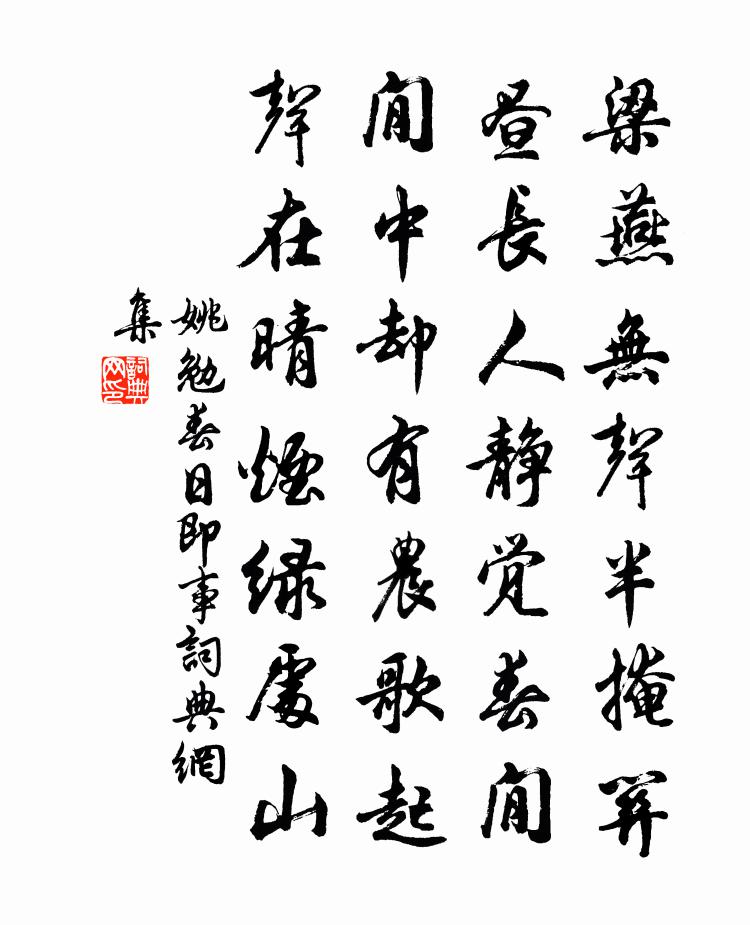 梁燕無聲半掩關
昼長人静觉春閒
閒中却有農歌起
聲在晴煙緑處山
姚勉春日即事詞典網
集
詞典网印